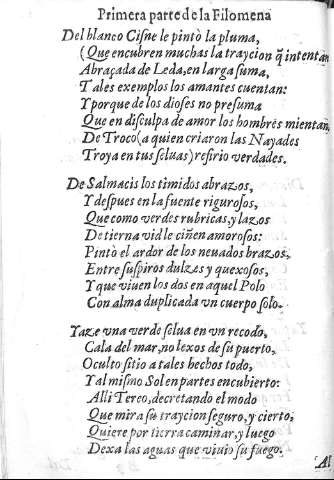 Primera parte de la Filomena
Del blanco Cisne le pintò la pluma,
(Que encubren muchas la traycion q̃ intentan
Abraçada de Leda, en larga suma,
Tales exemplos los amantes cuentan:
Y porque de los dioses no presuma
Que en disculpa de amor los hombres mientan,
De Troco (a quien criaron las Nayades
Troya en tus seluas) refirio verdades.
De Salmacis los timidos abrazos,
Y despues en la fuente rigurosos,
Que como verdes rubricas, y lazos
De tierna vid le ciñen amorosos:
Pintò el ardor de los neuados brazos,
Entre suspiros dulzes y quexosos,
Y que viuen los dos en aquel Polo
Con alma duplicada vn cuerpo solo.
Yaze vna verde selua en vn recodo,
Cala del mar, no lexos de su puerto,
Oculto sitio a tales hechos todo,
Y al mismo Sol en partes encubierto:
Alli Tereo, decretando el modo
Que mira su traycion seguro, y cierto,
Quiere por tierra caminar, y luego
Dexa las aguas que viuio su fuego.